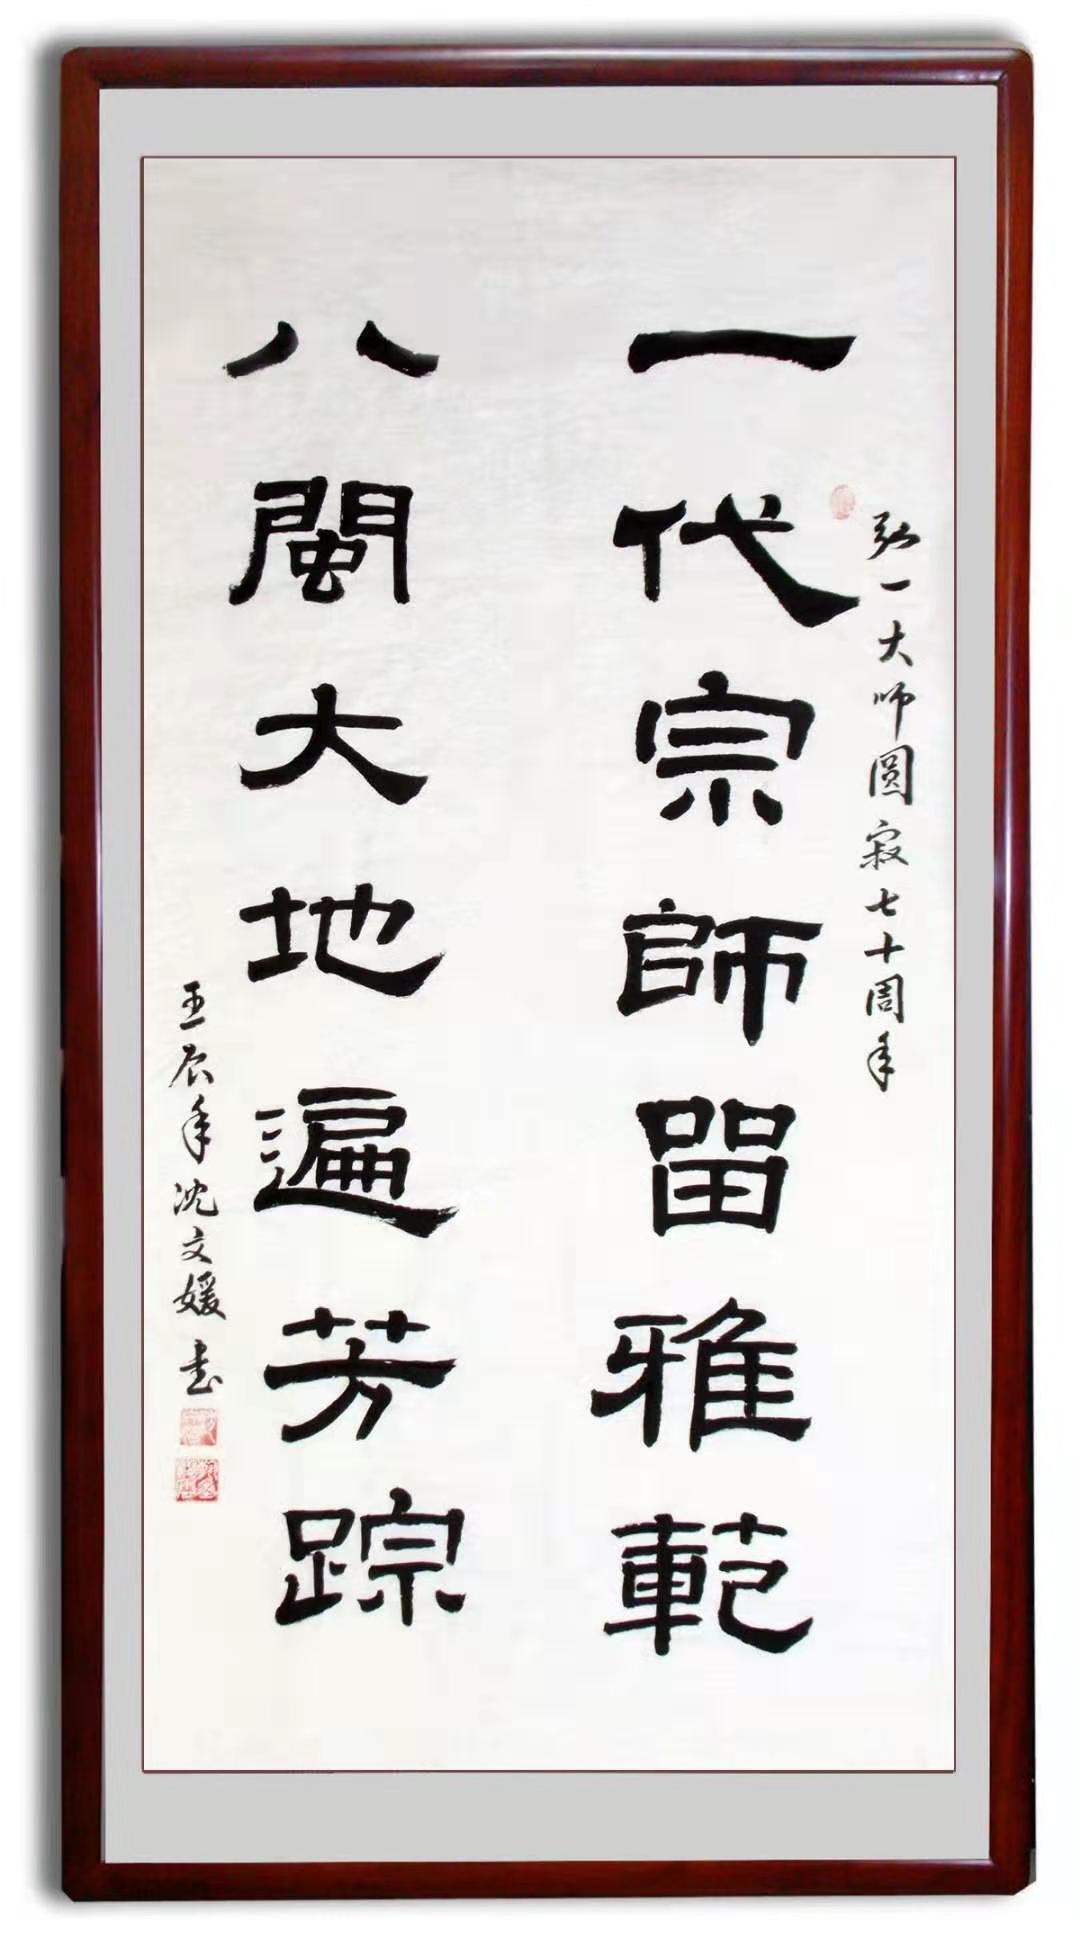 弘一大师圆寂七十周年
一代宗師留雅範
八閩大地遍芳踪
壬辰年沈文媛书